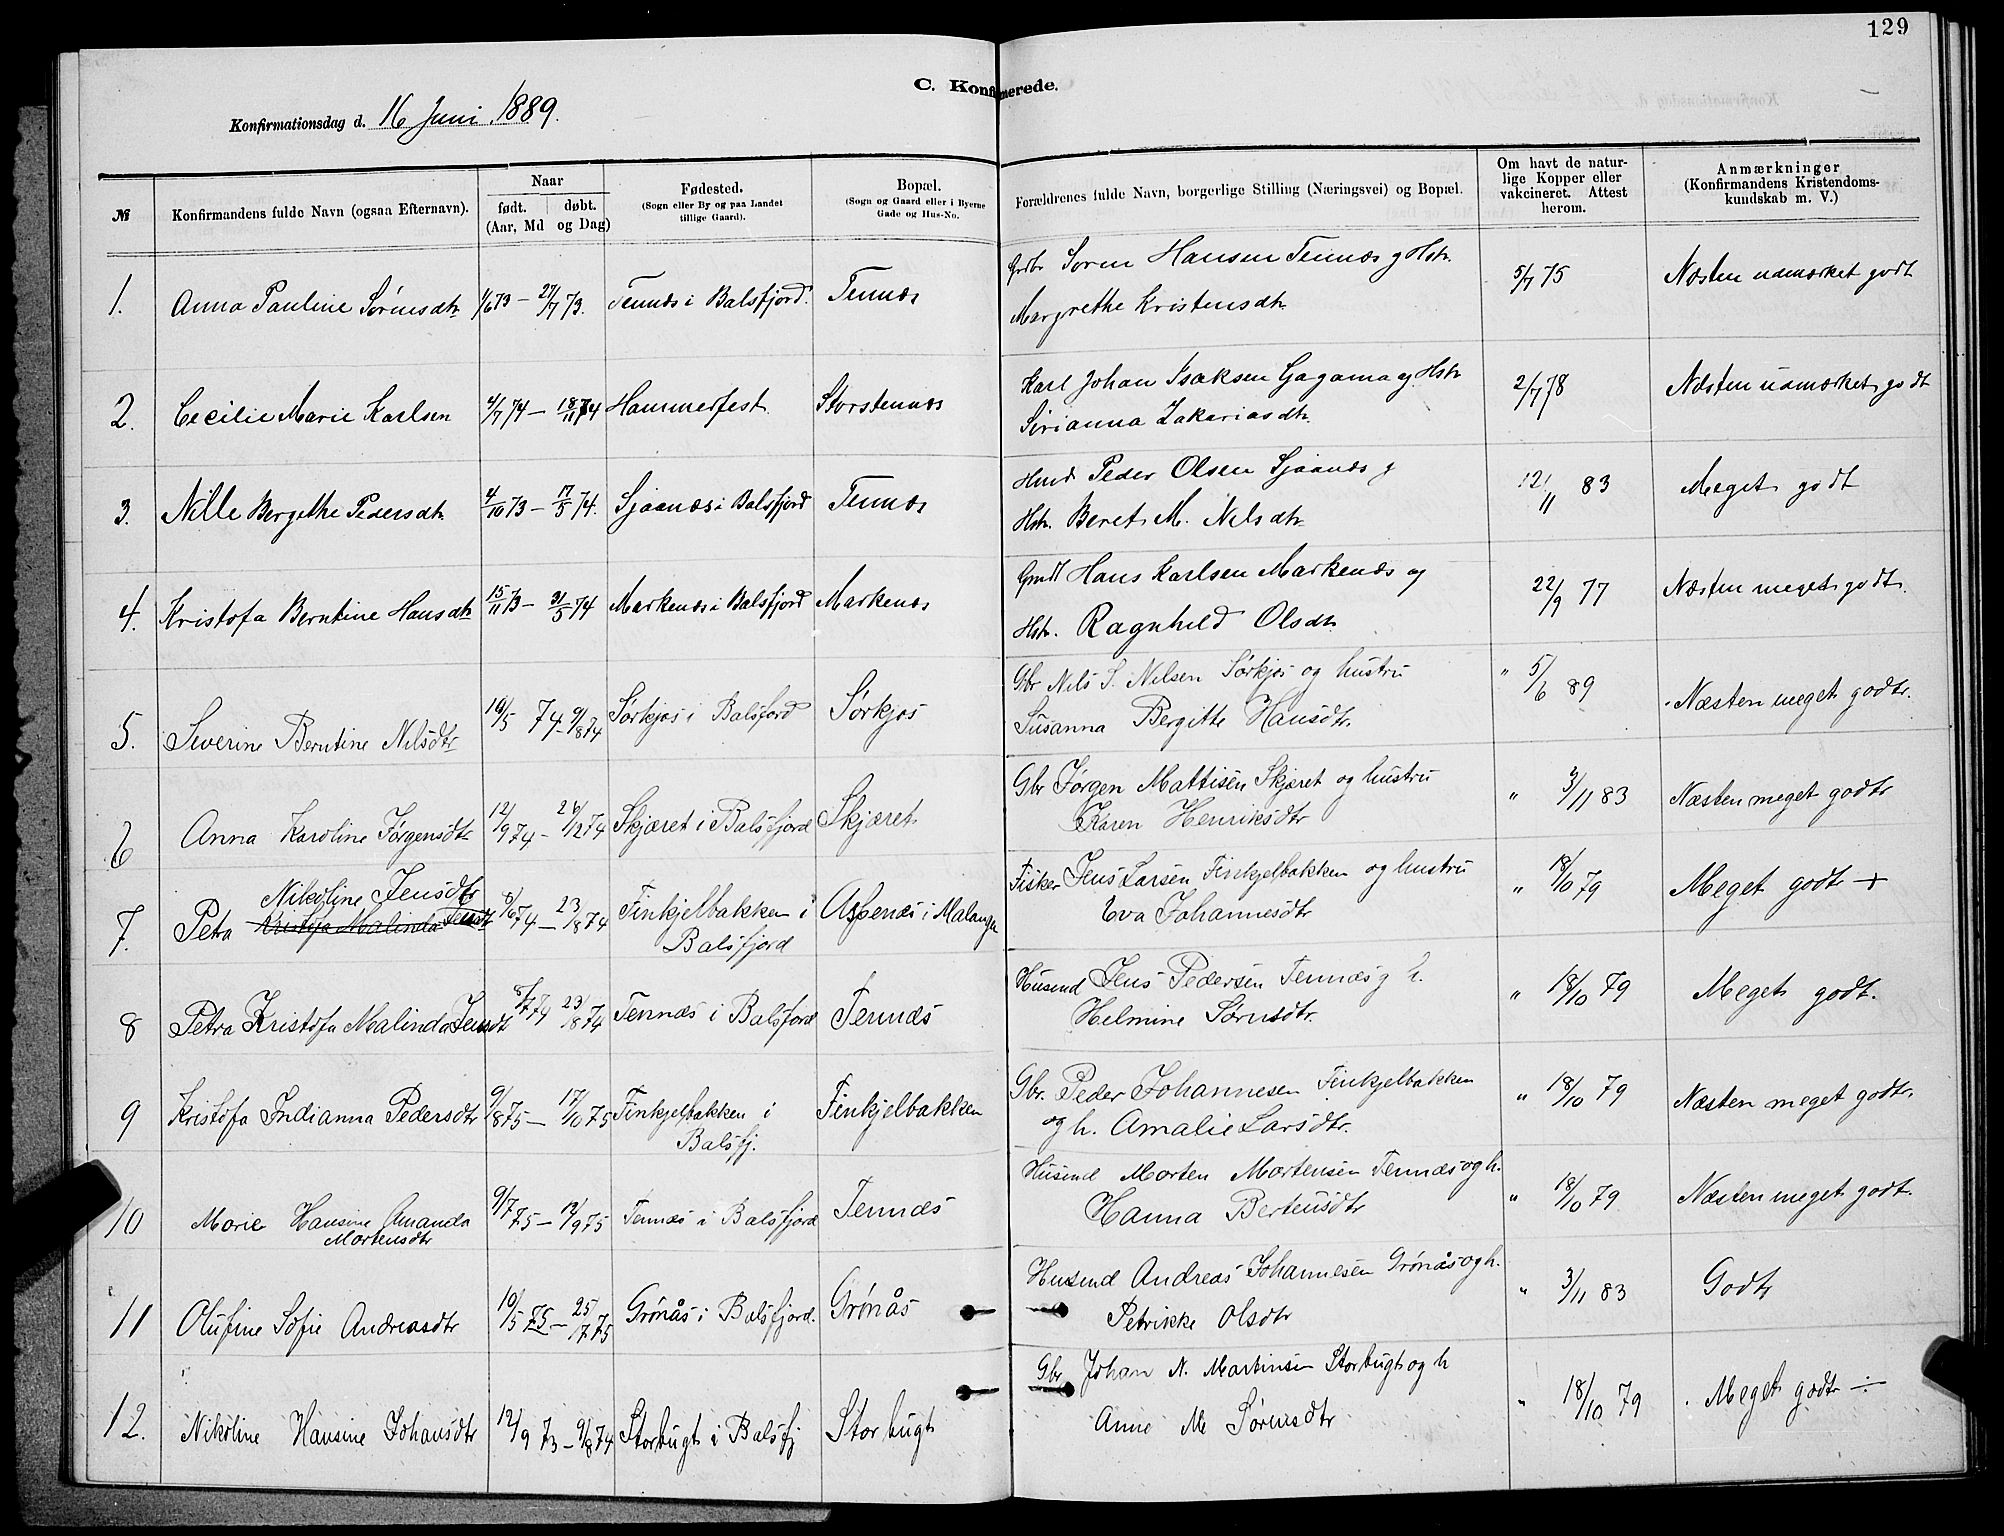 129
C. Konfirmerede.
Konfirmationsdag d. 16 Juni 1889.
№
Konfirmandens fulde Navn (ogsaa Efternavn).
Naar
født. døbt.
(Aar, Md og Dag)
Fødested.
(Sogn eller By og paa Landet
tillige Gaard).
Bopæl.
(Sogn og Gaard eller i Byerne
Gade og Hus-No.
Forældrenes fulde Navn, borgerlige Stilling (Næringsvei) og Bopæl.
Om havt de natur-
lige Kopper eller
vakcineret. Attest
herom.
Anmærkninger
(Konfirmandens Kristendoms-
kundskab m. V.)
1. Anna Pauline Sørensdtr 1/6 73 – 27/7 73. Tennæs i Balsfjord. Tennæs
Grdbr Søren Hansen Tennæs og Hstr.
Margrethe Kristensdtr
5/7 75 Næsten udmærket godt
2. Cecilie Marie Karlsen 4/7 74 – 18/11 74 Hammerfest Storstennæs
Karl Johan Isaksen Gagama og Hstr
Sørianna Zakariasdtr
2/7 78 Næsten udmærket godt
3. Nille Bergethe Pedersdtr 4/10 73 – 17/5 74. Sjaanæs i Balsfjord Tennæs
Hmd Peder Olsen Sjaanæs og
Hstr. Beret M. Nilsdtr
12/11 83 Meget godt
4. Kristofa Berntine Hansdtr 15/11 73 – 31/5 74 Markenæs i Balsfjord Markenæs
Hans Karlsen Markenæs og
Hstr. Ragnhild Olsdtr
22/9 77 Næsten meget godt.
5. Severine Berntine Nilsdtr 10/5 74 – 9/8 74 Sørkjos i Balsfjord Sørkjos
Gbr Nils S. Nilsen Sørkjos og hustru
Susanna Bergitte Hansdtr.
" 5/6 89 Næsten meget godt.
6 Anna Karoline Jørgensdtr 12/9 74 – 26/12 74 Skjæret i Balsfjord Skjæret
Gbr Jørgen Mattisen Skjæret og hustru
Karen Henriksdtr
" 3/11 83 Næsten meget godt
Nikoline Jensdtr
7. Petra Kristofa Malinda Jensdtr 5/6 74 – 23/8 74 Finkjelbakken i Aspenæs i Malangen
Balsfjord
Fisker Jens Larsen Finkjelbakken og hustru
Eva Johannesdtr
" 18/10 79 Meget godt +
8 Petra Kristofa Malinda Jensdt 8/7 74 23/8 74 Tennæs i Balsfjord Tennæs
Husmd Jens Pedersen Tennæs og h.
Helmine Sørnsdtr.
" 18/10 79 Meget godt.
9 Kristofa Indianna Pedersdtr 9/8 75 – 17/10 75 Finkjelbakken i Finkjelbakken
Balsfj.
Gbr. Peder Johannesen Finkjelbakken
og h. Amalie Larsdtr.
" 18/10 79 Næsten meget godt.
10 Marie Hansine Amanda 9/7 75 – 12/9 75 Tennæs i Balsfjord Tennæs
Mortensdtr
Husmd Morten Mortensen Tennæs og h.
Hanna Bertensdtr
" 18/10 79 Næsten meget godt.
11 Olufine Sofie Andreasdtr 10/5 75 – 25/7 75 Grønås i Balsfjord. Grønås
Husmd Andreas Johannesen Grønås og h.
Petrikke Olsdtr
" 3/11 83 Godt
12. Nikoline Hansine Johansdtr 12/9 73 – 9/8 74 Storbugt i Balsfj Storbugt
Gbr Johan N. Martinsen Storbugt og h
Anne M Sørnsdtr
" 18/10 79 Meget godt ÷